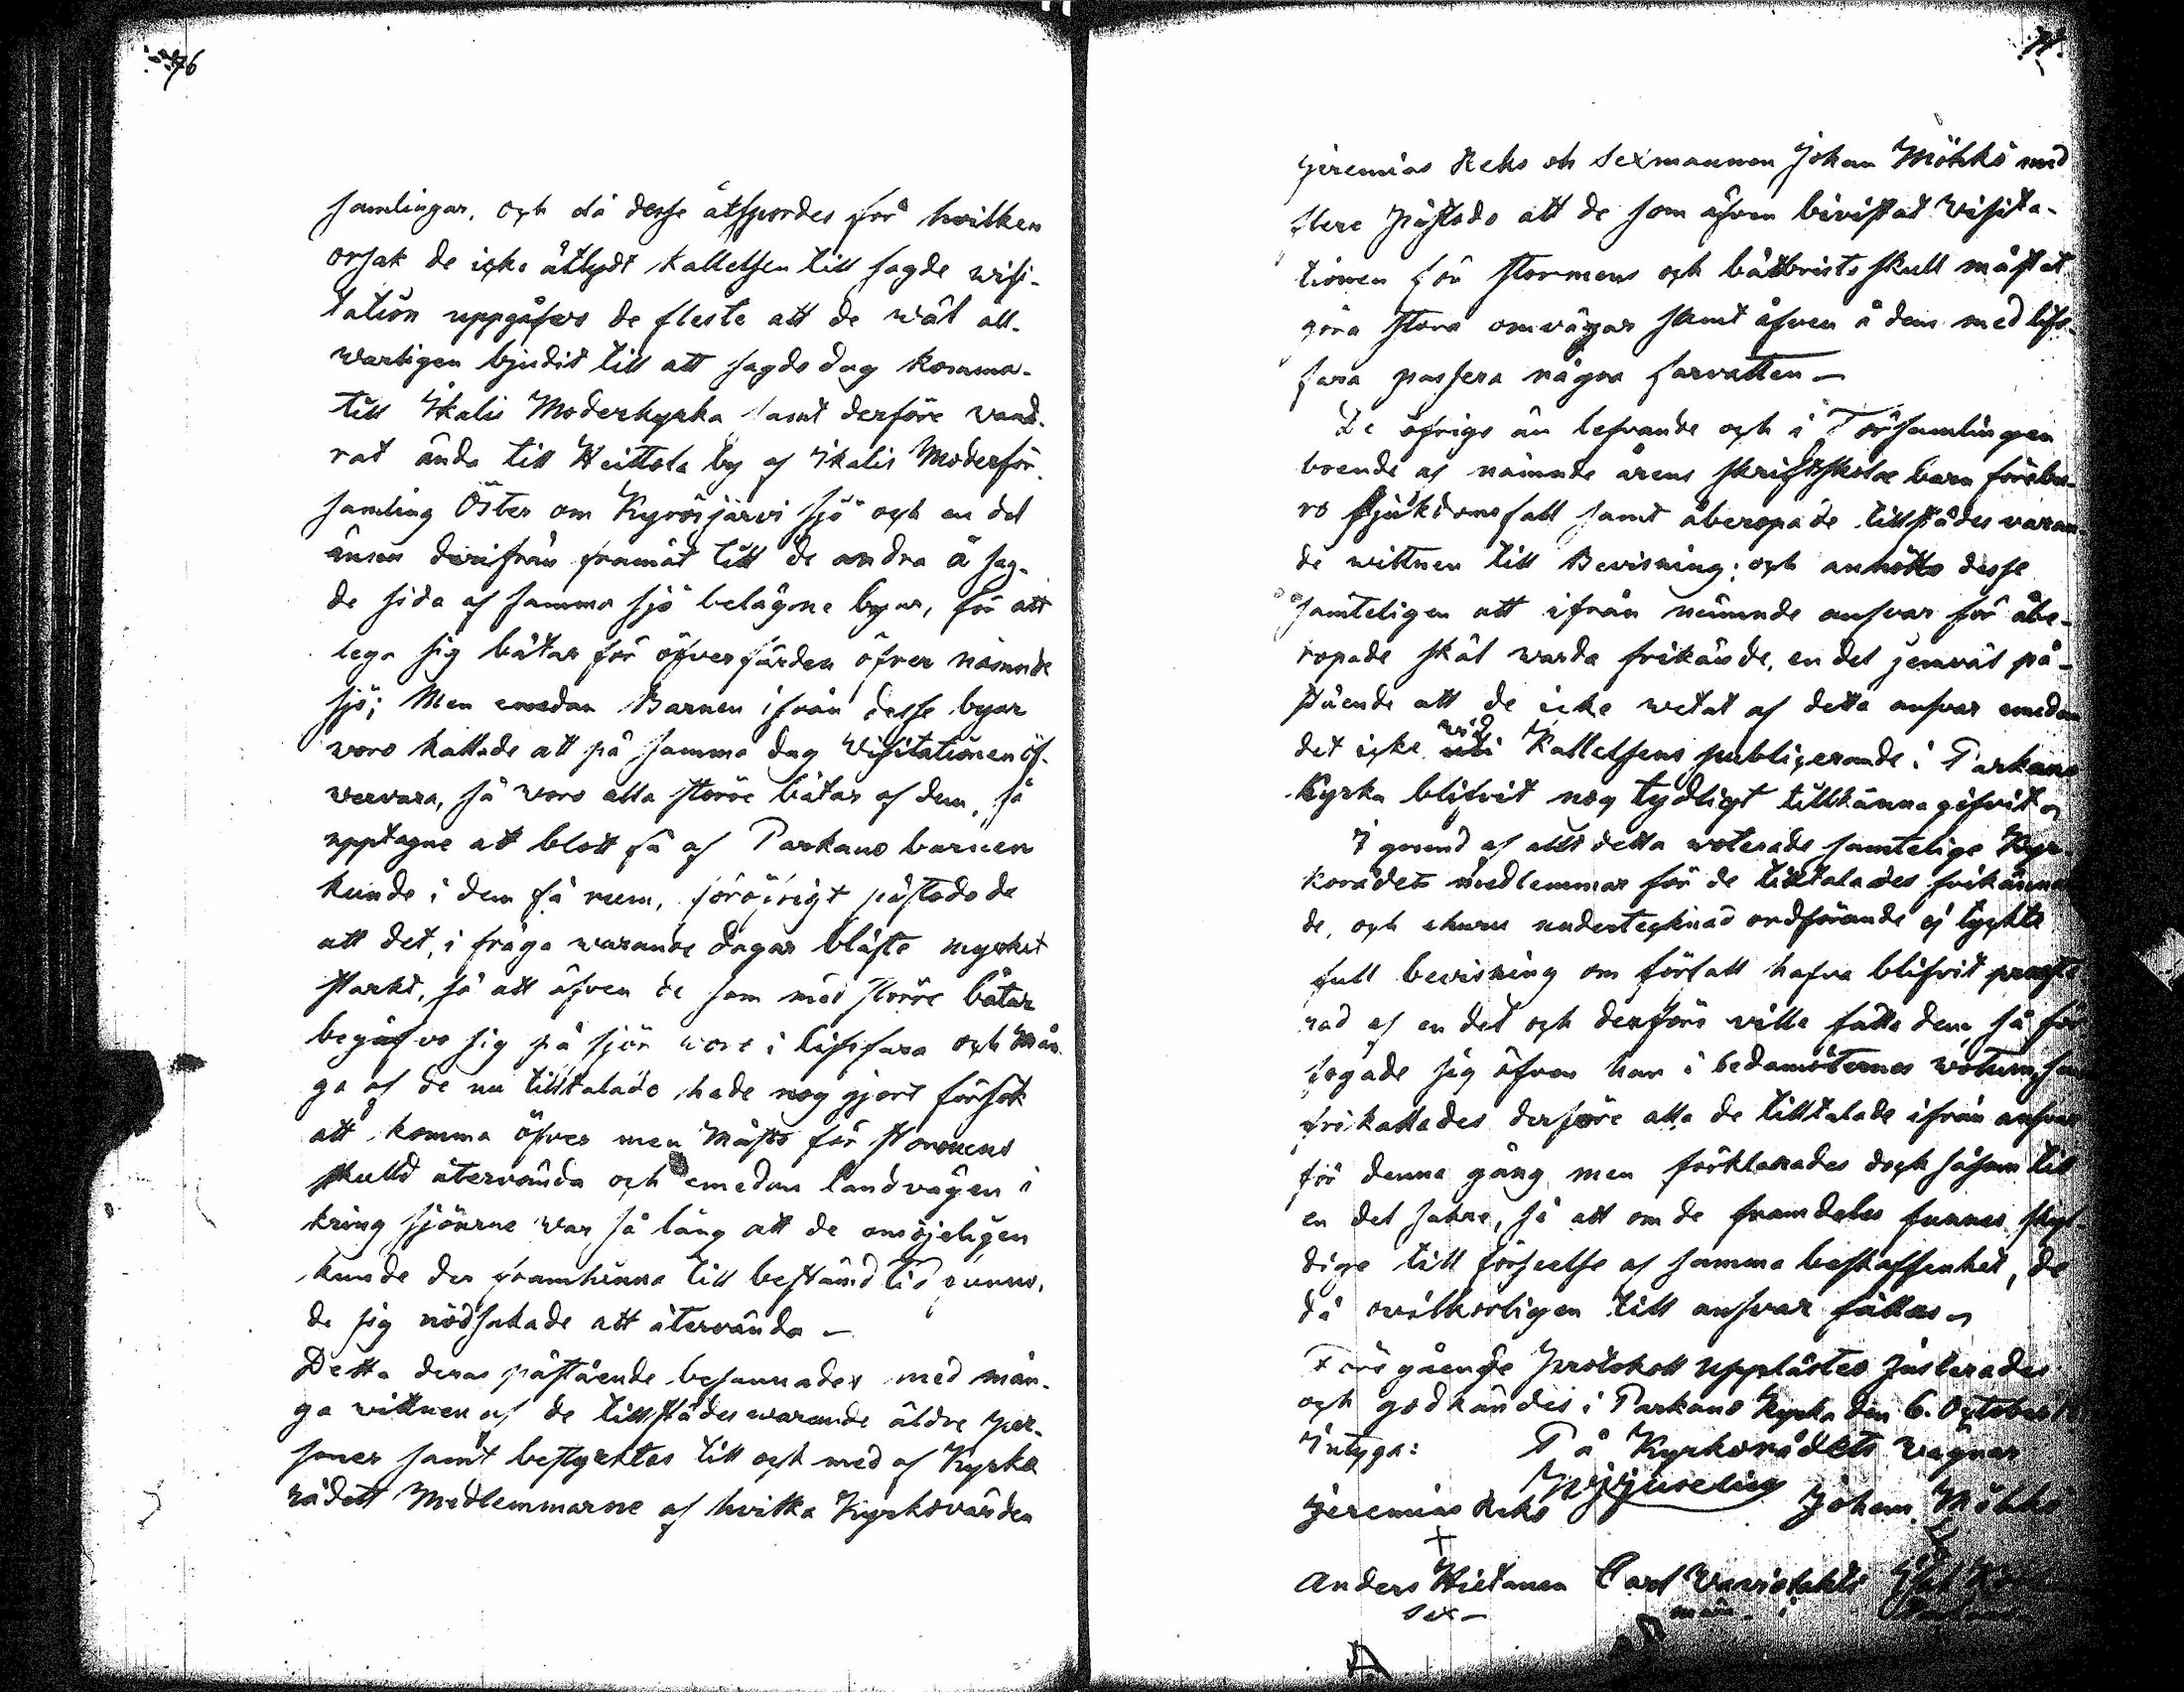 76
samlingar, och då desse åtspordes för hvilken
orsak de icke åtlydt kallelsen till sagde wisi-
tation uppgåfvo de fleste att de wäl all-
warligen bjudit till att sagde dag komma
till Ikalis Moderkyrka samt derföre vand-
rat ända till Heittola by af Ikalis Moderför-
samling Öster om Kyrösjärvi sjö och en del
ännu derifrån framåt till de andra å sag-
de sida af samma sjö belägne byar, för att
lega sig båtar för öfverfärden öfver nämnde
sjö; Men emedan Barnen ifrån desse byar
voro kallade att på samma dag Visitationen öf-
vervara, så voro alla större båtar af dem så
upptagne att blott få af Parkano barnen
kunde i dem få rum, föröfrigt påstodo de
att det, i fråga warande dagar blåste mycket
starkt, så att äfven de som med större båtar
begåfvo sig på sjön wore i lifsfara och Mån-
ga af de nu tilltalade hade nog gjort försök
att komma öfver men Måste för stormens
skulld återvända och emedan landvägen i
kring sjöarne war så lång att de omöjeligen
kunde der framhinna till bestämd tid funno
de sig nödsakade att återvända –
Detta deras påstående besannades med mån-
ga vittnen af de tillstädes warande äldre per-
soner samt bestyrktes till och med af Kyrko
rådets Medlemmarne af hvilka Kyrkovärden
Jeremias Reko och Sexmannen Johan Möhkö med
flere påstodo att de som äfven bivistat Visita-
tionen för stormens och båtbrists skull måstat
göra stora omvägar samt äfven å dem med lifs-
fara passera några farvatten –
De öfrige än lefvande och i Församlingen
boende af nämnde årens skriftskole barn förebu-
ro sjukdomsfall samt åberopade tillstädes varan
de wittnen till Bevisning; och anhöllo desse
samteligen att ifrån nämnde ansvar för åbe-
ropade skäl warda frikände, en del jemväl på-
stående att de icke wetat af detta ansvar emedan
det icke wid Kallelsens publicerande i Parkano
Kyrka blifvit nog tydligt tillkänna gifvit
I grund af allt detta voterade samtelige Kyr-
korådets medlemmar för de tilltalades frikännan
de, och ehuru undertecknad ordförande ej tyckte
full bevisning om förfall hafva blifvit preste
rad af en del och derföre ville fälla dem, så för
fogade sig äfven han i ledamöternes wotum, sam
frikallades derföre alla de tilltalade ifrån ansvar
för denna gång men förklarades dock såsom till
en del sakre, så att om de framdeles funnes skyl-
dige till förseelse af samma beskaffenhet, de
då ovilkorligen till ansvar fällas
Föregående Protokoll upplästes justerades
och godkändes i Parkano Kyrka den 6. October
Intyga: På Kyrkorådets vägnar
Jeremias Reko Johan Möhkö
Anders Hietanen Carl Vaviolahti
Sex- män i